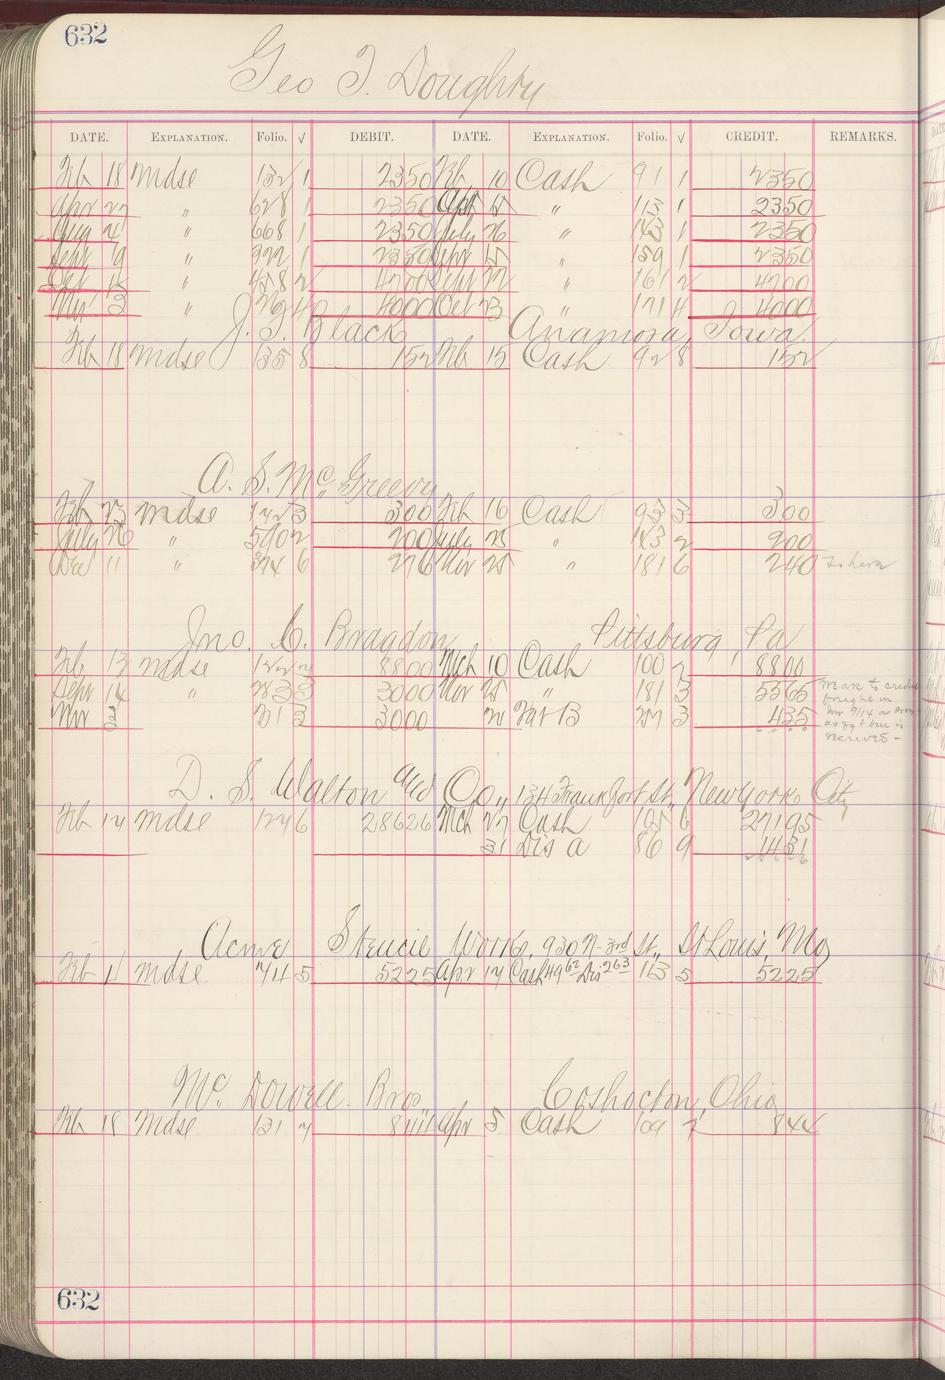 632
Geo T. Doughty
DATE. EXPLANATION. Folio. √ DEBIT. DATE. EXPLANATION. Folio. √ CREDIT. REMARKS.
Feb 18 Mdse 132 1 2350 Feb 10 Cash 91 1 2350
Apr 27 " 628 1 2350 Apr 15 " 113 1 2350
Aug 4 " 668 1 2350 July 26 " 143 1 2350
Sept 9 " 1 2350 " 159 1 2350
" 458 2 4700 Sept 22 " 161 2 4700
Nov 3 " 4 4000 Oct 23 " 171 4 4000
J. T. Black Anamosa, Iowa.
Feb 18 Mdse 135 8 152 Feb 15 Cash 92 8 152
A. S. McGreevy
Feb 23 Mdse 142 3 300 Feb 16 Cash 93 3 300
July 26 " 590 2 200 July 23 " 143 2 200
Dec 11 " 374 6 276 Nov 25 " 181 6 240
Jno. C. Bragdon Pittsburg, Pa
Feb 13 Mdse 122 8800 Mch 10 Cash 100 2 8800
Sept 14 " 283 3 3000 Nov 25 " 181 3 5565
Nov 3000 B 27 3 435
D. S. Walton and Co., 134 Frankfort St., New York City
Feb 14 Mdse 124 6 28626 Mch 27 Cash 105 6 27195
31 Dis a 86 9 1431
28626
Acme Stencil Works, 930 N-3rd St., St Louis, Mo
Feb 11 Mdse 5 5225 Apr 14 Cash 49 62 Dis 2 63 113 5 5225
McDowell Bros Coshocton, Ohio
Feb 18 Mdse 131 844 Apr 5 Cash 109 844
632